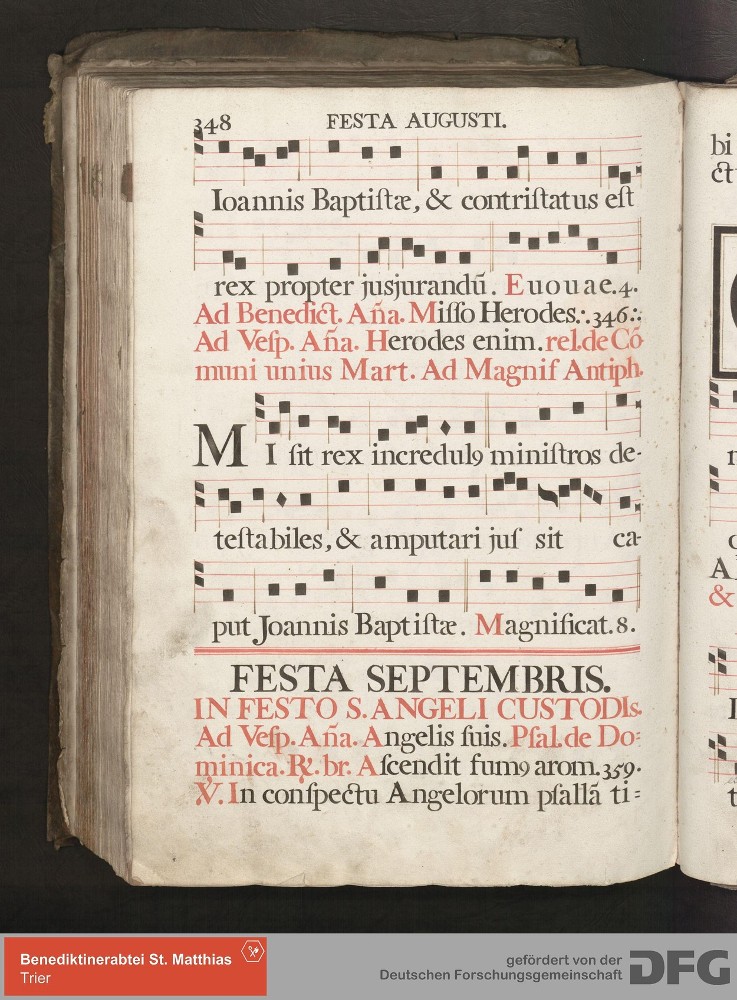 348 FESTA AUGUSTI.
Ioannis Baptiſtæ, & contriſtatus eſt
rex propter jusjurandū. Euouae.4.
Ad Benedict. Aña. Miſſo Herodes.:.346.:.
Ad Veſp. Aña. Herodes enim. rel. de Có-
muni unius Mart. Ad Magnif Antiph.
MI ſit rex incredulꝯ miniſtros de-
teſtabiles, & amputari juſ sit ca-
put Joannis Baptiſtæ. Magnificat. 8.
FESTA SEPTEMBRIS.
IN FESTO S. ANGELI CUSTODIs.
Ad Veſp. Aña. Angelis ſuis. Pſal. de Do:
minica. ℟. br. Aſcendit fumꝯ arom. 359.
℣. In conſpectu Angelorum pſallã ti=
bi
ct
A
&
Benediktinerabtei St. Matthias
Trier
gefördert von der
Deutschen Forschungsgemeinschaft
DFG